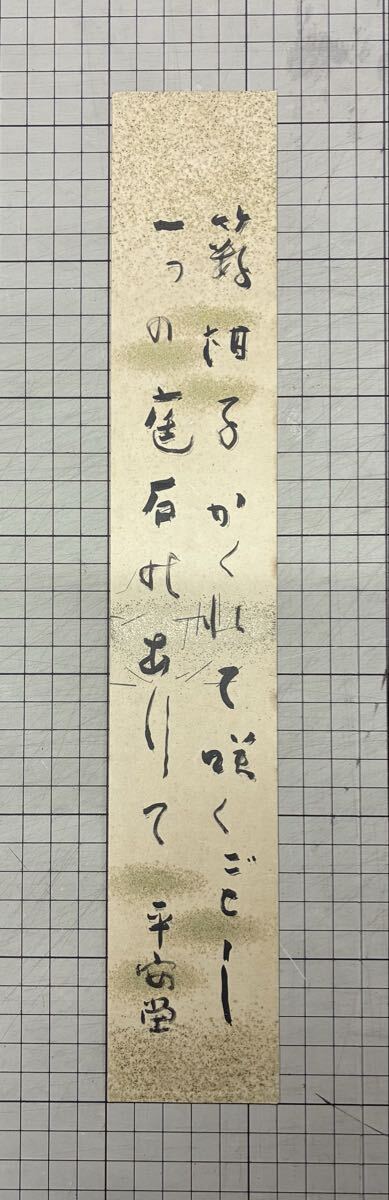 藪柑子かくれて咲くごとし
一つの庭石のありて 平安堂